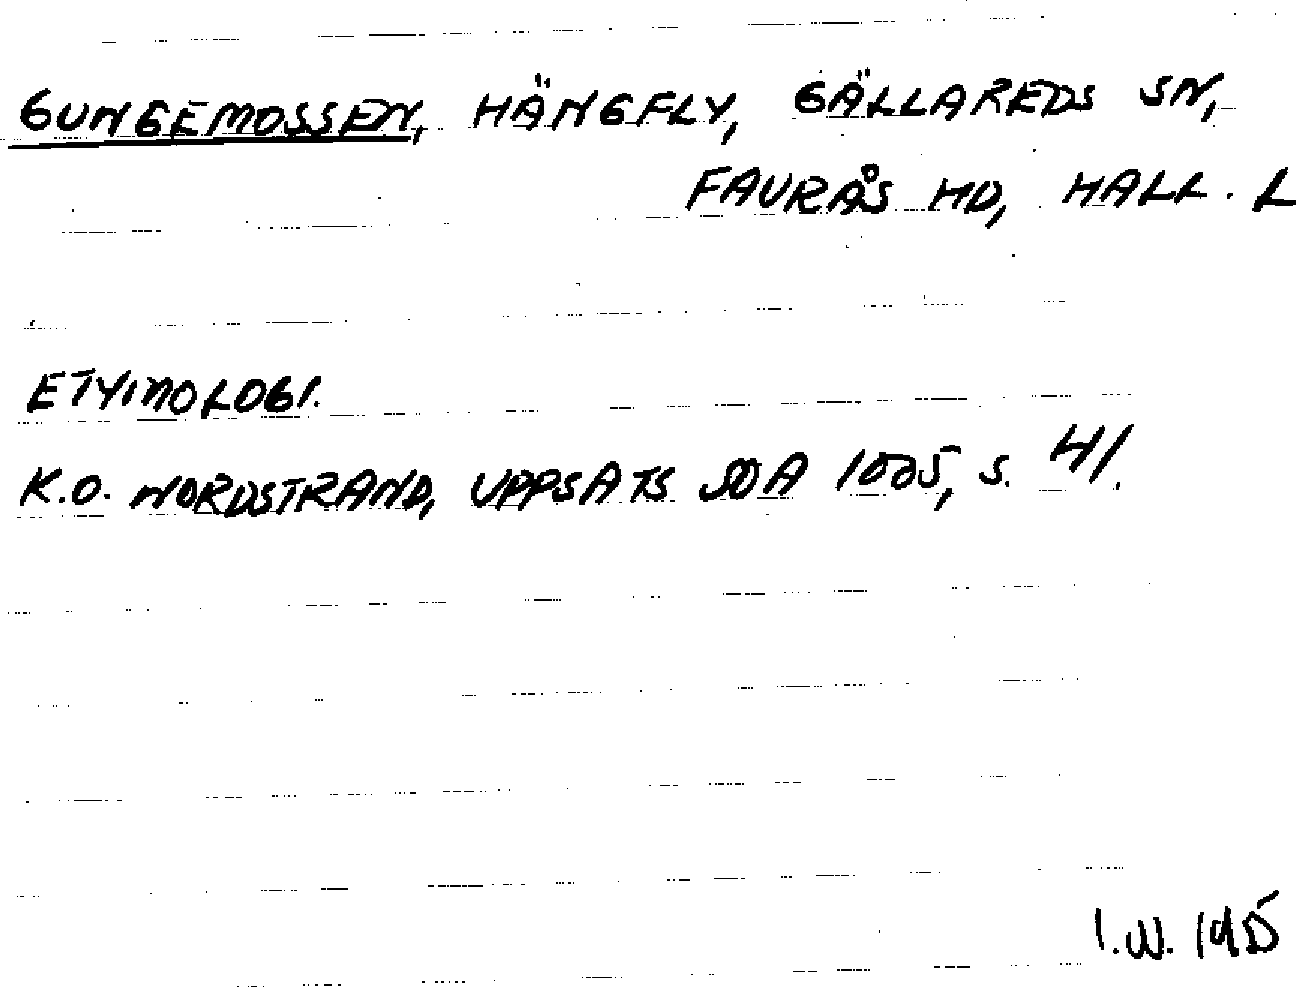 GUNGEMOSSEN, HÄNGFLY, GÄLLAREDS SN,
FAURÅS HD, HALL. L
ETYMOLOGI.
K.O. NORDSTRAND, UPPSATS SOA 1005, S. 41.
I.W. 195